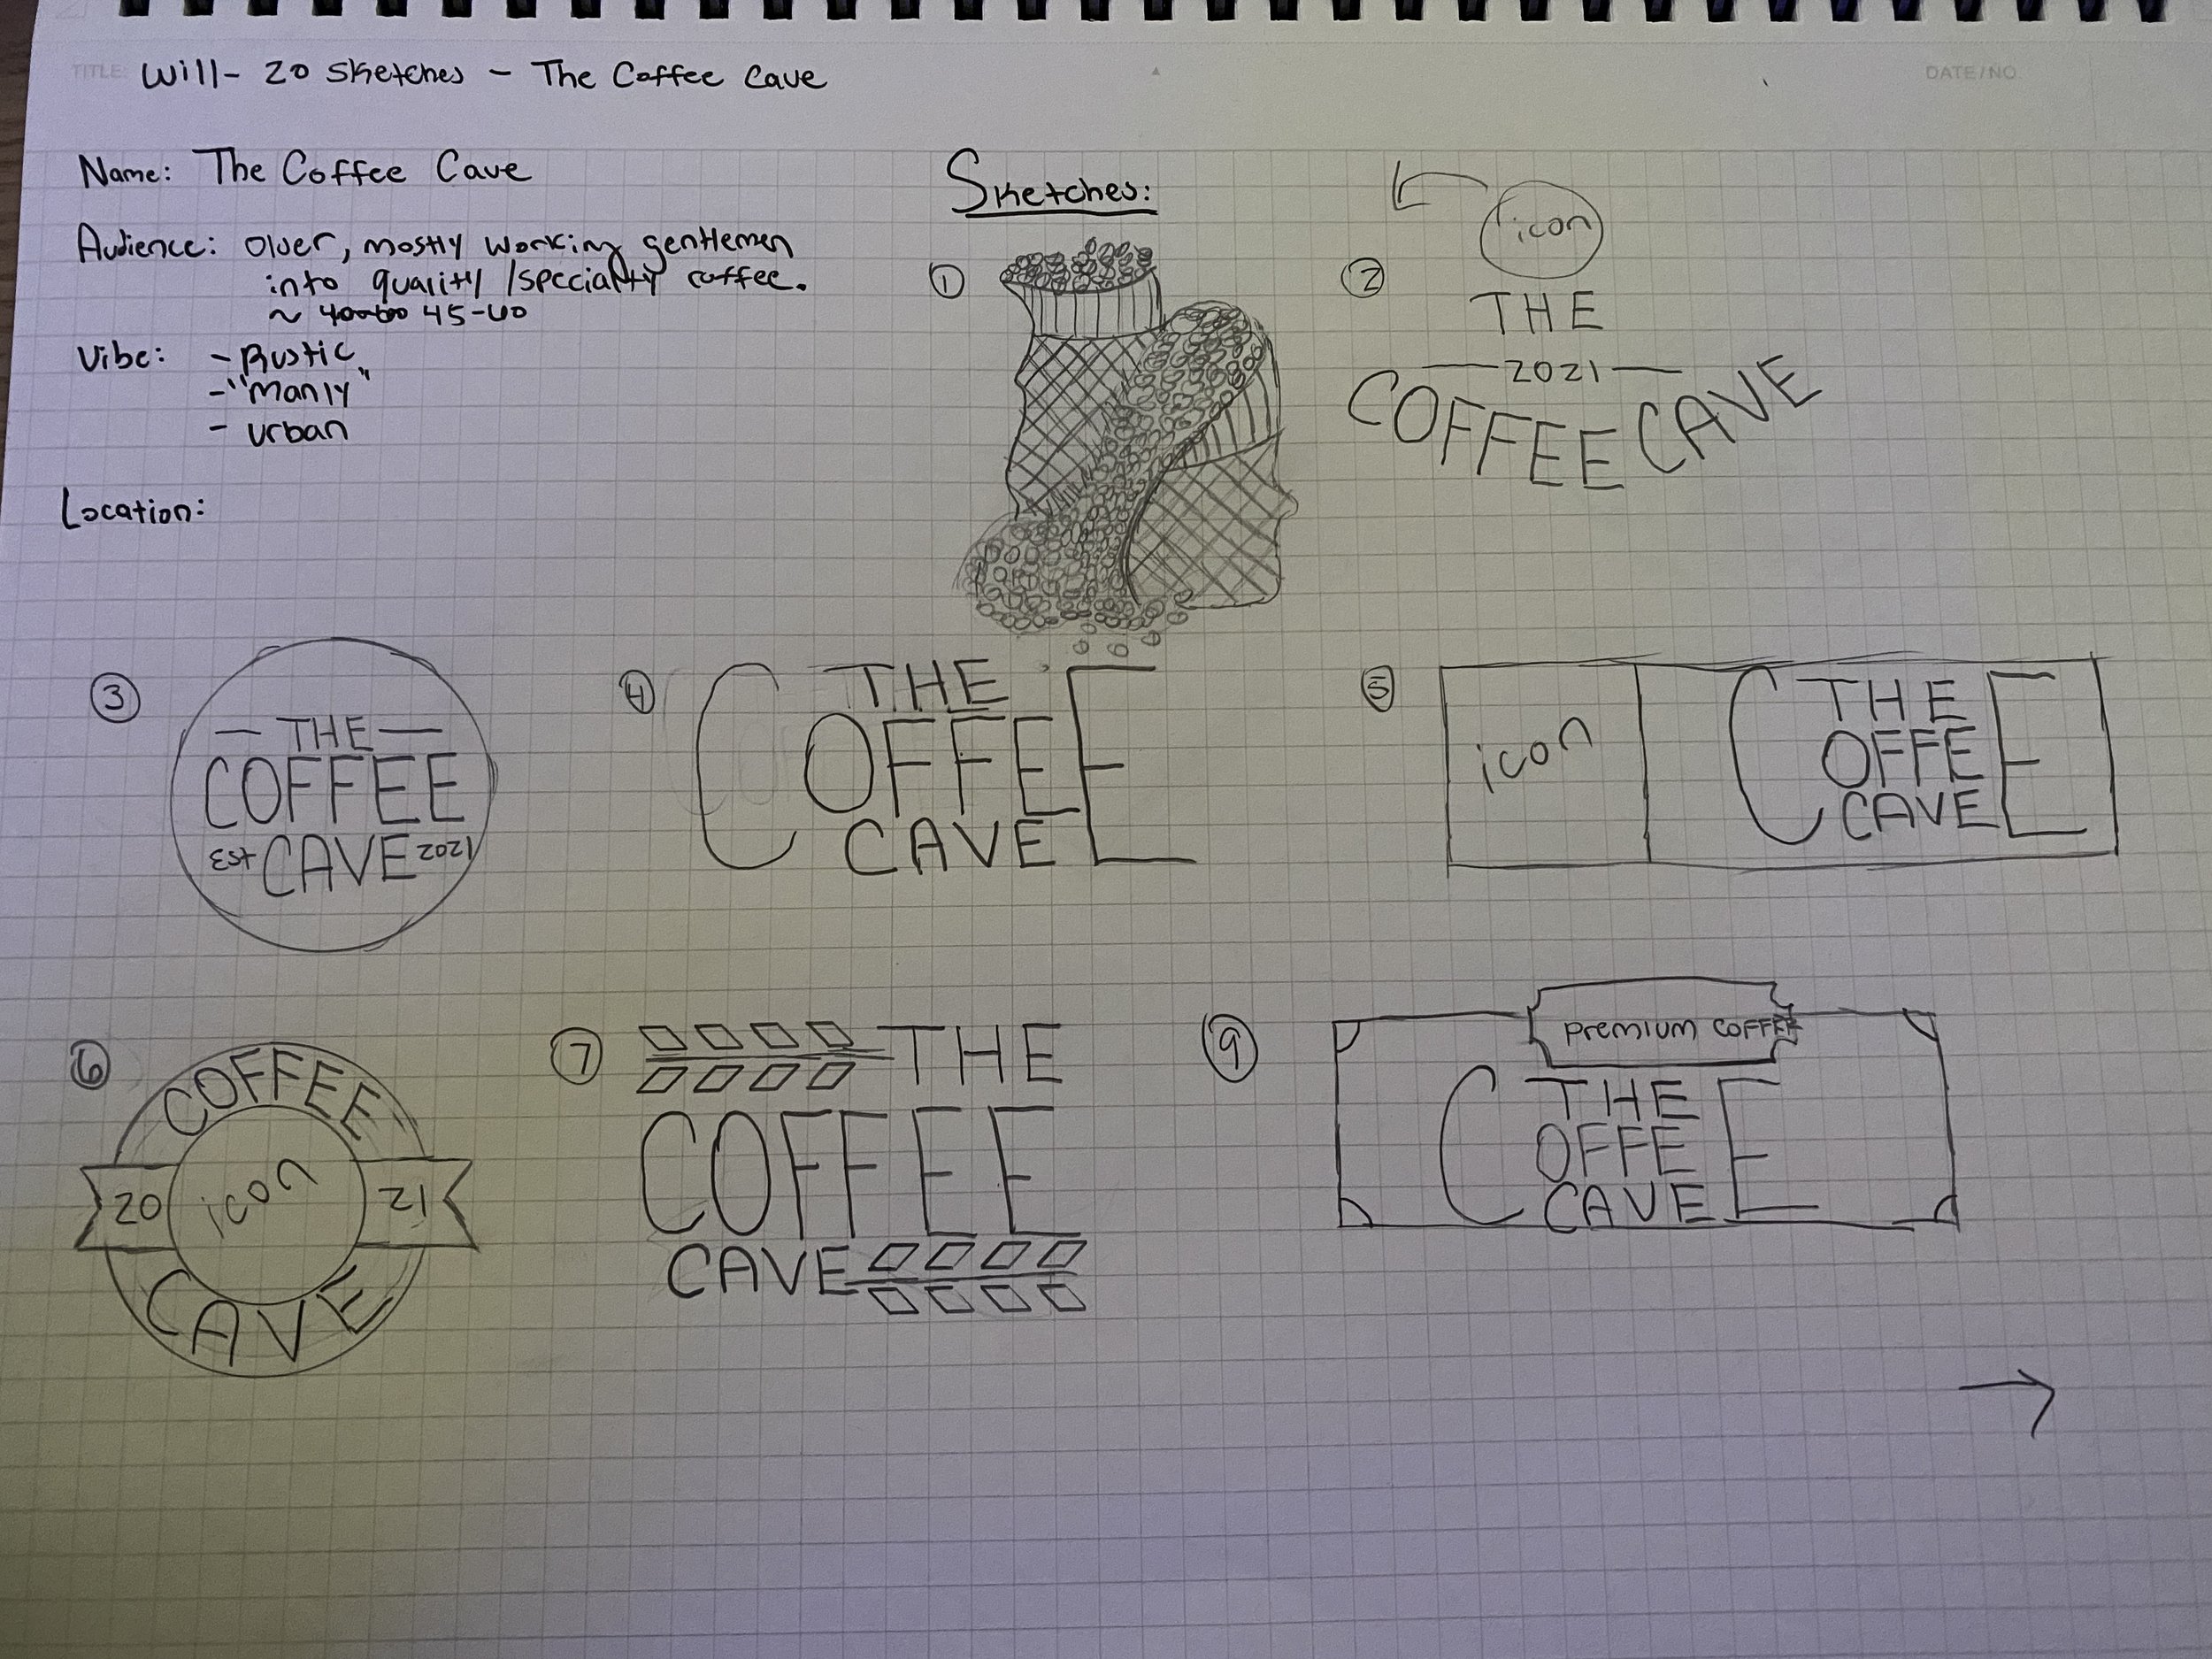 TITLE: Will - 20 Sketches - The Coffee Cave
DATE/NO.
Name: The Coffee Cave
Audience: Older, mostly working gentlemen
into quality/specialty coffee.
~ 45-60
Vibe: - Rustic
- "Manly"
- Urban
Location:
Sketches:
1
2
icon
THE
2021
COFFEE CAVE
3
THE
COFFEE
Est CAVE 2021
4
THE
COFFEE
CAVE
5
icon
THE
COFFEE
CAVE
6
COFFEE
20 icon 21
CAVE
7
THE
COFFEE
CAVE
9
Premium COFFEE
THE
COFFEE
CAVE